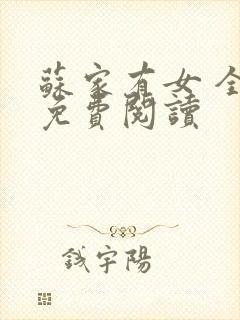 蘇家有女 全
免費閱讀
錢宇陽